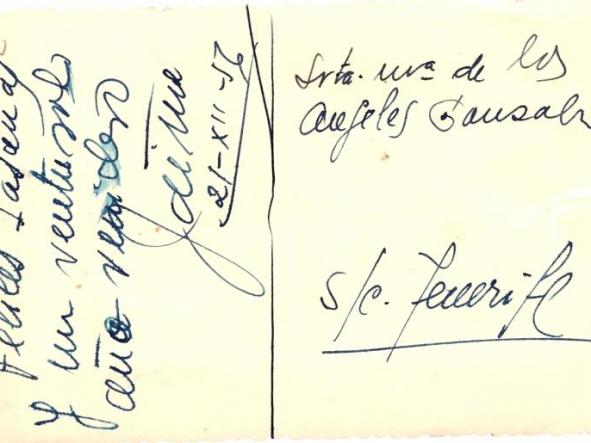 Felices Pascuas
Y un venturoso
año venidero
Jaime
21-XII-56
Srta. Mª de los
Angeles Gonsale
S/C. Tenerife